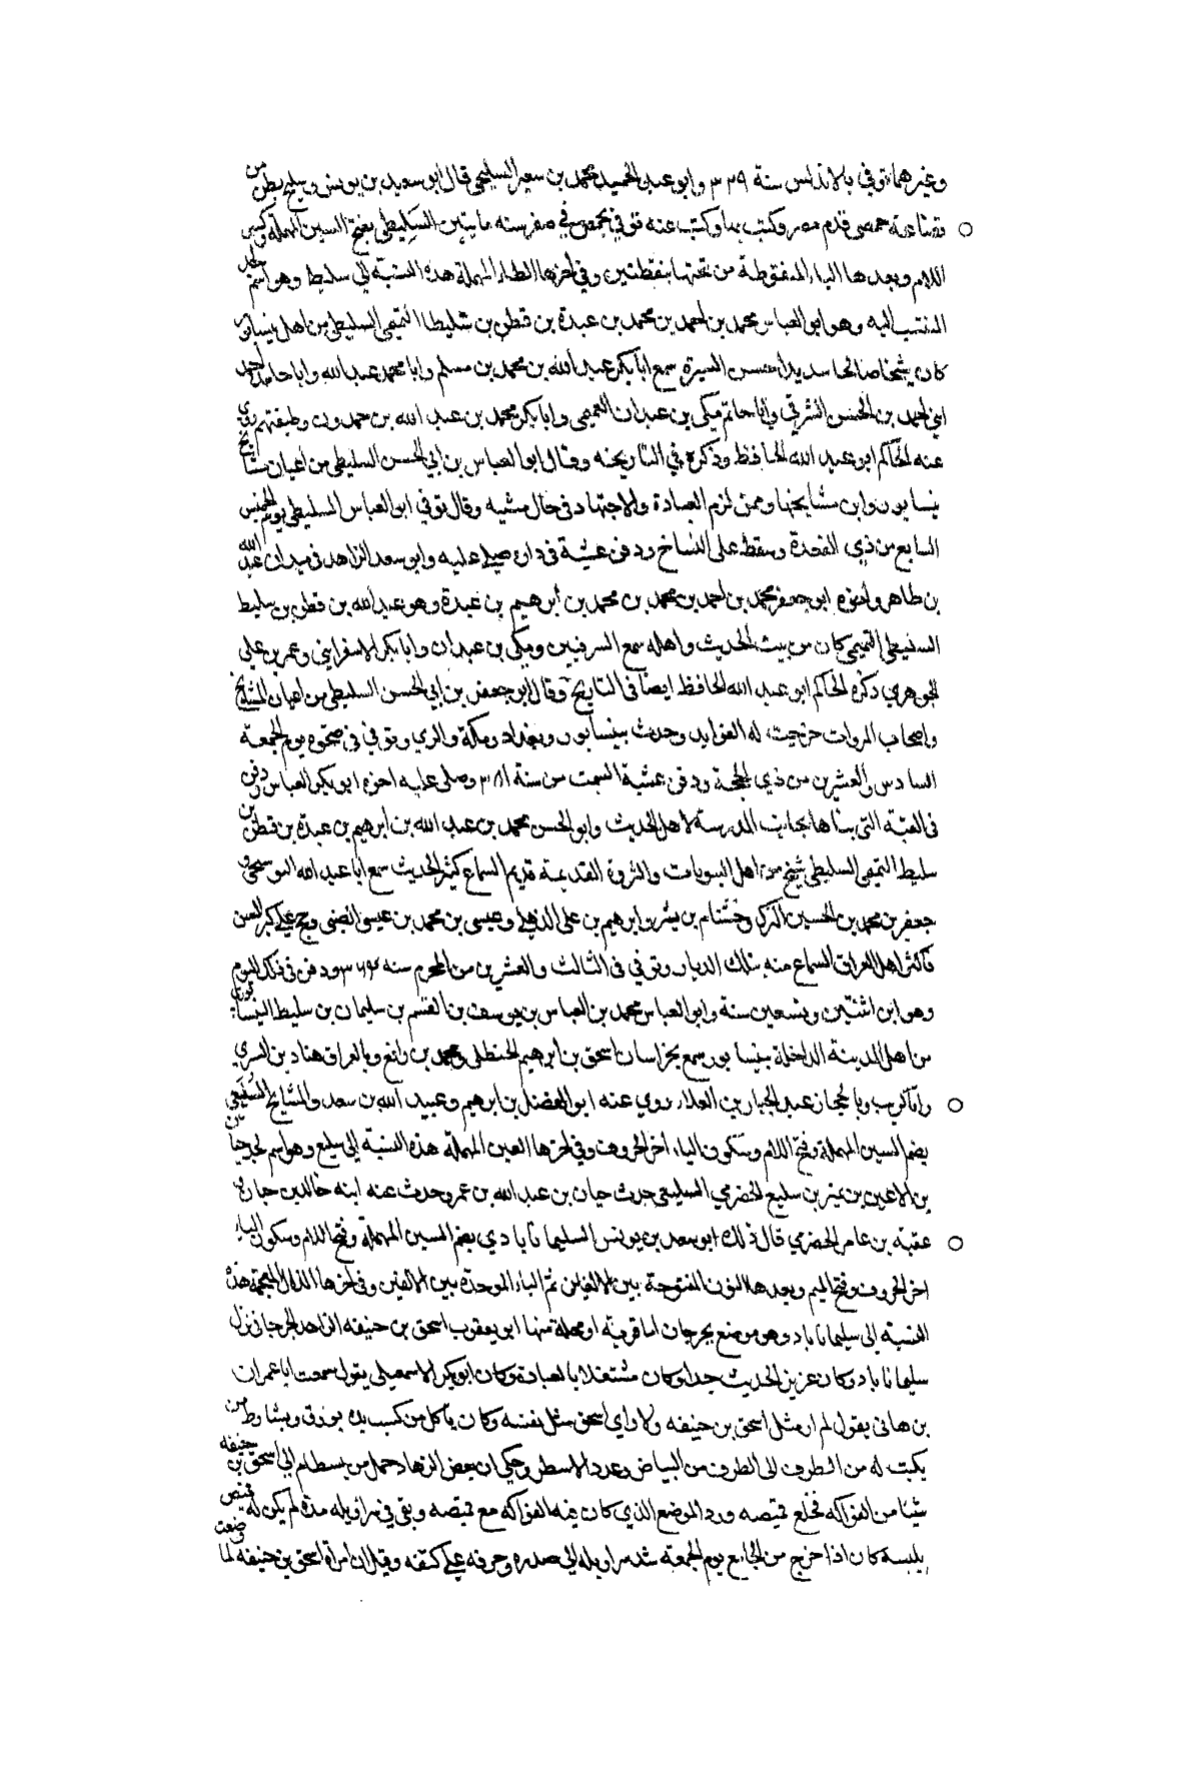 وغيرهما توفي بالاندلس سنة ٣٣٩ وابو عبد الحميد محمد بن سعيد السليحي قال ابو سعيد بن يونس وسليح بطن من
قضاعة حمصي قدم مصر وكتب بها وكتب عنه توفي بحمص في صفر سنه مايتين السَلِيطي بفتح السين المهملة وكسر
اللام وبعدها الياء المنقوطة من تحتها بنقطتين وفي اخرها الطاء المهملة هذه النسبة الى سليط وهو اسم لجد
المنتسب اليه وهو ابو العباس محمد بن احمد بن محمد بن عبدة بن قطن بن سليط التميمي السليطي من اهل نيسابور
كان شيخا صالحا سديدا حسن السيرة سمع ابا بكر عبد الله بن محمد بن مسلم وابا محمد عبد الله وابا حامد احمد
ابني احمد بن الحسن الشرقي وابا حاتم مكي بن عبدان التميمي وابا بكر محمد بن عبد الله بن حمدون وطبقتهم روي
عنه الحاكم ابو عبد الله الحافظ وذكره في التاريخ وقال ابو العباس بن ابي الحسن السليطي من اعيان مشايخ
نيسابور وابن مشايخها وممن لزم العبادة والاجتهاد في حال مشيبه وقال توفي ابو العباس السليطي يوم الخميس
السابع من ذي القعدة وسقط على النساخ ودفن عشية في داره صلى عليه ابو سعد الزاهد في ميدان عبد الله
بن طاهر واخوه ابو جعفر محمد بن احمد بن محمد بن محمد بن ابرهيم بن عبدة وهو عبد الله بن قطن بن سليط
السليطي التميمي كان من بيت الحديث واهله سمع الشرقيين ومكي بن عبدان وابا بكر الاسفرايني وعمر بن علي
الجوهري ذكره الحاكم ابو عبد الله الحافظ ايضا في التاريخ وقال ابو جعفر بن ابي الحسن السليطي من اعيان المشايخ
واصحاب المروات خرجت له الفوايد وحدث بنيسابور وبغداد ومكة والري وتوفي في ضحوة يوم الجمعة
السادس والعشرين من ذي الحجة ودفن عشية السبت من سنة ٣٨١ وصلى عليه اخوه ابو بكر العباس ودفن
في القبة التي بناها بجانب المدرسة لاهل الحديث وابو الحسن محمد بن عبد الله بن ابرهيم بن عبدة بن قطن بن
سليط التميمي السليطي شيخ من اهل البيوتات والثروة القديمة قديم السماع كثير الحديث سمع ابا عبد الله البوسنجي و
جعفر بن محمد بن الحسين الترك وخشنام بن بشر وابرهيم بن علي الذهلي وعيسى بن محمد بن عيسى الضبي وحج على كبر السن
فاكثر اهل العراق السماع منه بتلك الديار وتوفي في الثالث والعشرين من المحرم سنه ٣٦٤ ودفن في ذلك اليوم
وهو ابن اثنتين وتسعين سنة وابو العباس محمد بن العباس بن يوسف بن القسم بن سليمان بن سليط النيسابوري
من اهل المدينة الداخلة بنيسابور سمع بخراسان اسحق بن ابرهيم الحنظلي ومحمد بن رافع وبالعراق هناد بن السري
وابا كريب وبالحجاز عبد الجبار بن العلاء روي عنه ابو الفضل بن ابرهيم وعبيد الله بن سعد والمشايخ السُلَيعي
بضم السين المهملة وفتح اللام وسكون الياء اخر الحروف وفي اخرها العين المهملة هذه النسبة الى سليع وهو اسم لجد حيان
بن الاعين بن نمير بن سليع الحضرمي السليعي حدث حيان بن عبد الله بن عمر وحدث عنه ابنه خالد بن حيان و
عقبة بن عامر الحضرمي قال ذلك ابو سعد بن يونس السليماناباذي بضم السين المهملة وفتح اللام وسكون الياء
اخر الحروف وفتح الميم وبعدها النون المفتوحة بين الالفين ثم الباء الموحدة بين الالفين وفي اخرها الذال المعجمة هذه
النسبة الى سليماناباد وهو موضع بجرجان اما قرية او محلة منها ابو يعقوب اسحق بن حنيفه الزاهد الجرجاني نزل
سليماناباد وكان عزيز الحديث جدا وكان مشتغلا بالعبادة وكان ابو بكر الاسمعيلي يقول سمعت ابا عمران
بن هاني يقول لم ار مثل اسحق بن حنيفه ولا راي اسحق مثل نفسه وكان ياكل من كسب يده بورق ويشارط من
يكتب له من الطرف الى الطرف من البياض وعدد الاسطر وحكي ان بعض الزهاد حمل من بسطام الى اسحق بن حنيفه
شيئا من الفواكه فخلع قميصه ورد الموضع الذي كان فيه الفواكه مع قميصه وبقي في سراويله مدة لم يكن له قميص
يلبسه كان اذا خرج من الجامع يوم الجمعة شد سراويله الى صدره وخرقه على كتفه وقيل ان امراة اسحق بن حنيفه لما وضعت